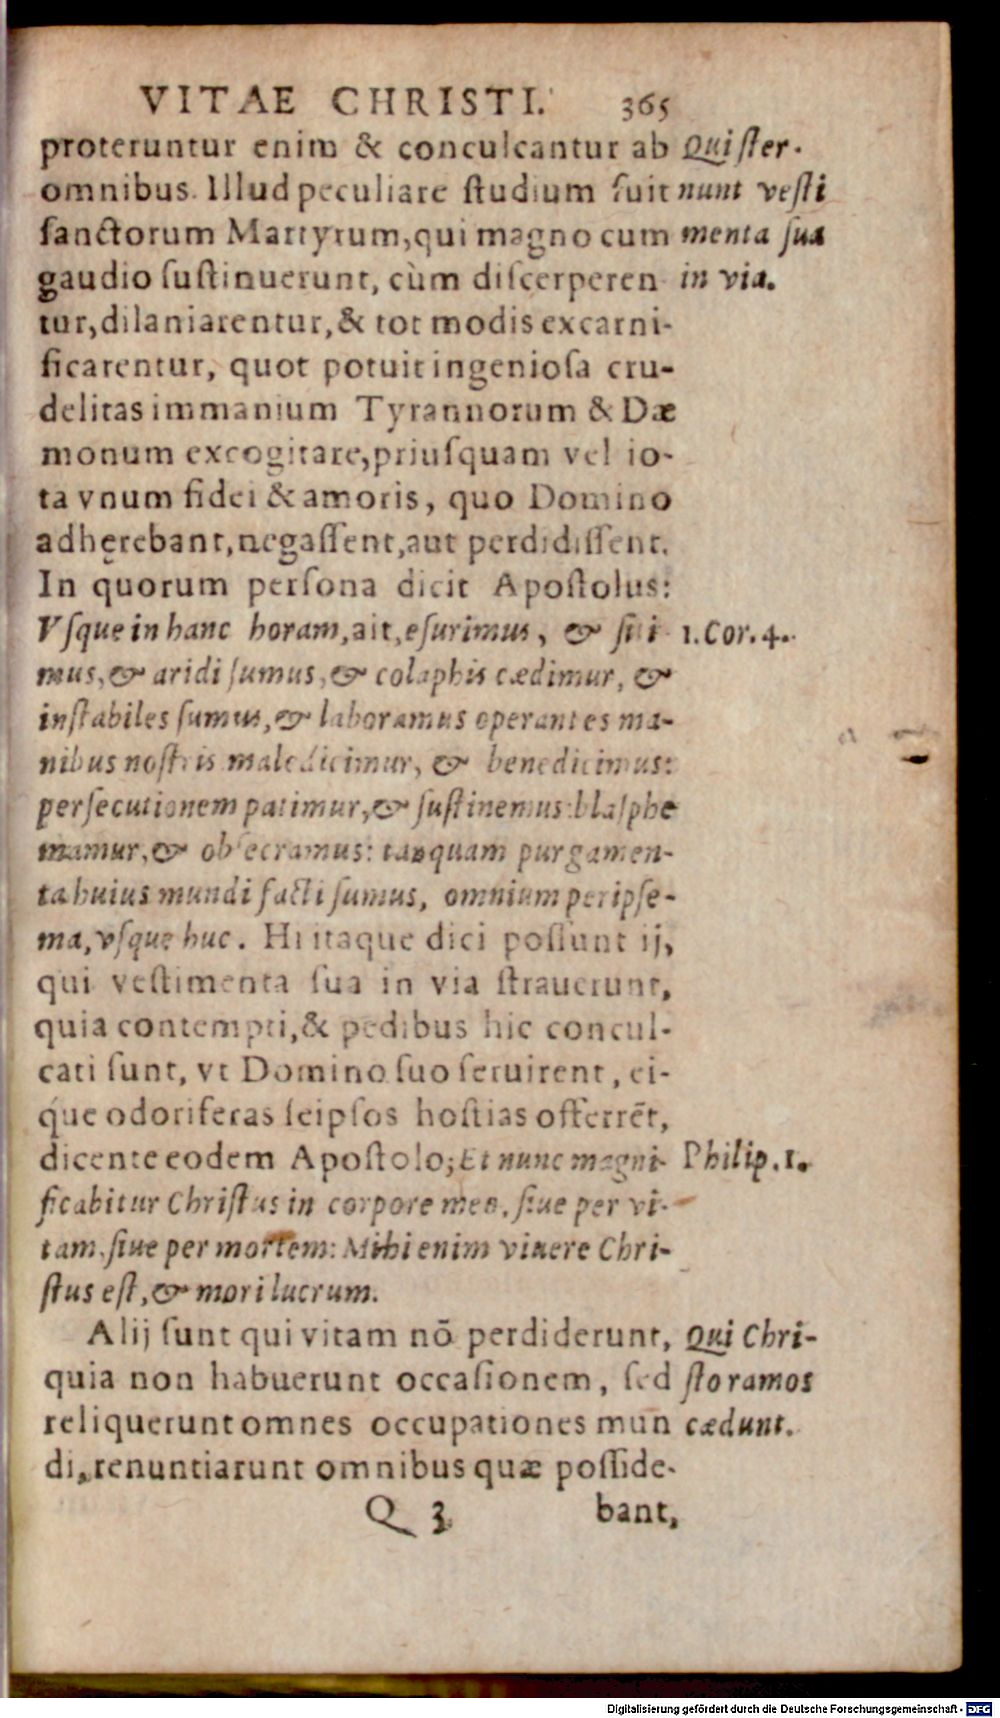 VITAE CHRISTI. 365
proteruntur enim & conculcantur ab
omnibus. Illud peculiare studium fuit
sanctorum Martyrum, qui magno cum
gaudio sustinuerunt, cùm discerperen
tur, dilaniarentur, & tot modis excarni-
ficarentur, quot potuit ingeniosa cru-
delitas immanium Tyrannorum & Dæ
monum excogitare, priusquam vel io-
ta vnum fidei & amoris, quo Domino
adherebant, negassent, aut perdidissent.
In quorum persona dicit Apostolus:
Vsque in hanc horam, ait, esurimus, & siti
mus, & aridi sumus, & colaphis cædimur, &
instabiles sumus, & laboramus operantes ma-
nibus nostris maledicimur, & benedicimus:
persecutionem patimur, & sustinemus: blasphe
mamur, & obsecramus: tanquam purgamen-
ta huius mundi facti sumus, omnium peripse-
ma, vsque huc. Hi itaque dici possunt ij,
qui vestimenta sua in via strauerunt,
quia contempti, & pedibus hic concul-
cati sunt, vt Domino suo seruirent, ei-
que odoriferas seipsos hostias offerrēt,
dicente eodem Apostolo; Et nunc magni-
ficabitur Christus in corpore meo, siue per vi-
tam, siue per mortem: Mihi enim viuere Chri-
stus est, & mori lucrum.
Alij sunt qui vitam nō perdiderunt,
quia non habuerunt occasionem, sed
reliquerunt omnes occupationes mun
di, renuntiarunt omnibus quæ posside-
Q 3 bant,
Qui ster-
nunt vesti
menta sua
in via.
1. Cor. 4.
Philip. 1.
Qui Chri-
sto ramos
cædunt.
Digitalisierung gefördert durch die Deutsche Forschungsgemeinschaft - DFG